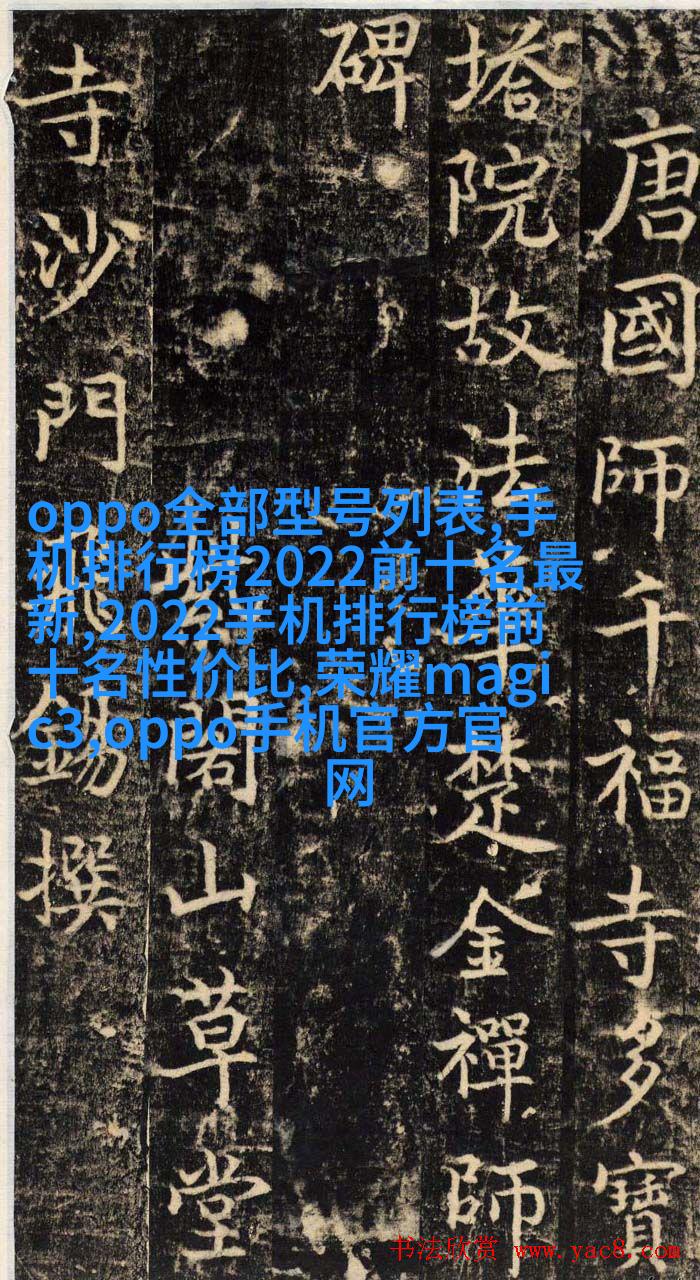 唐國師千福寺多寶
塔院故法華楚金禪師
碑
紫閣山草堂
寺沙門飛錫撰
oppo全部型号列表,手
机排行榜2022前十名最
新,2022手机排行榜前
十名性价比,荣耀magi
c3,oppo手机官方官
网
书法欣赏 www.yac8.com